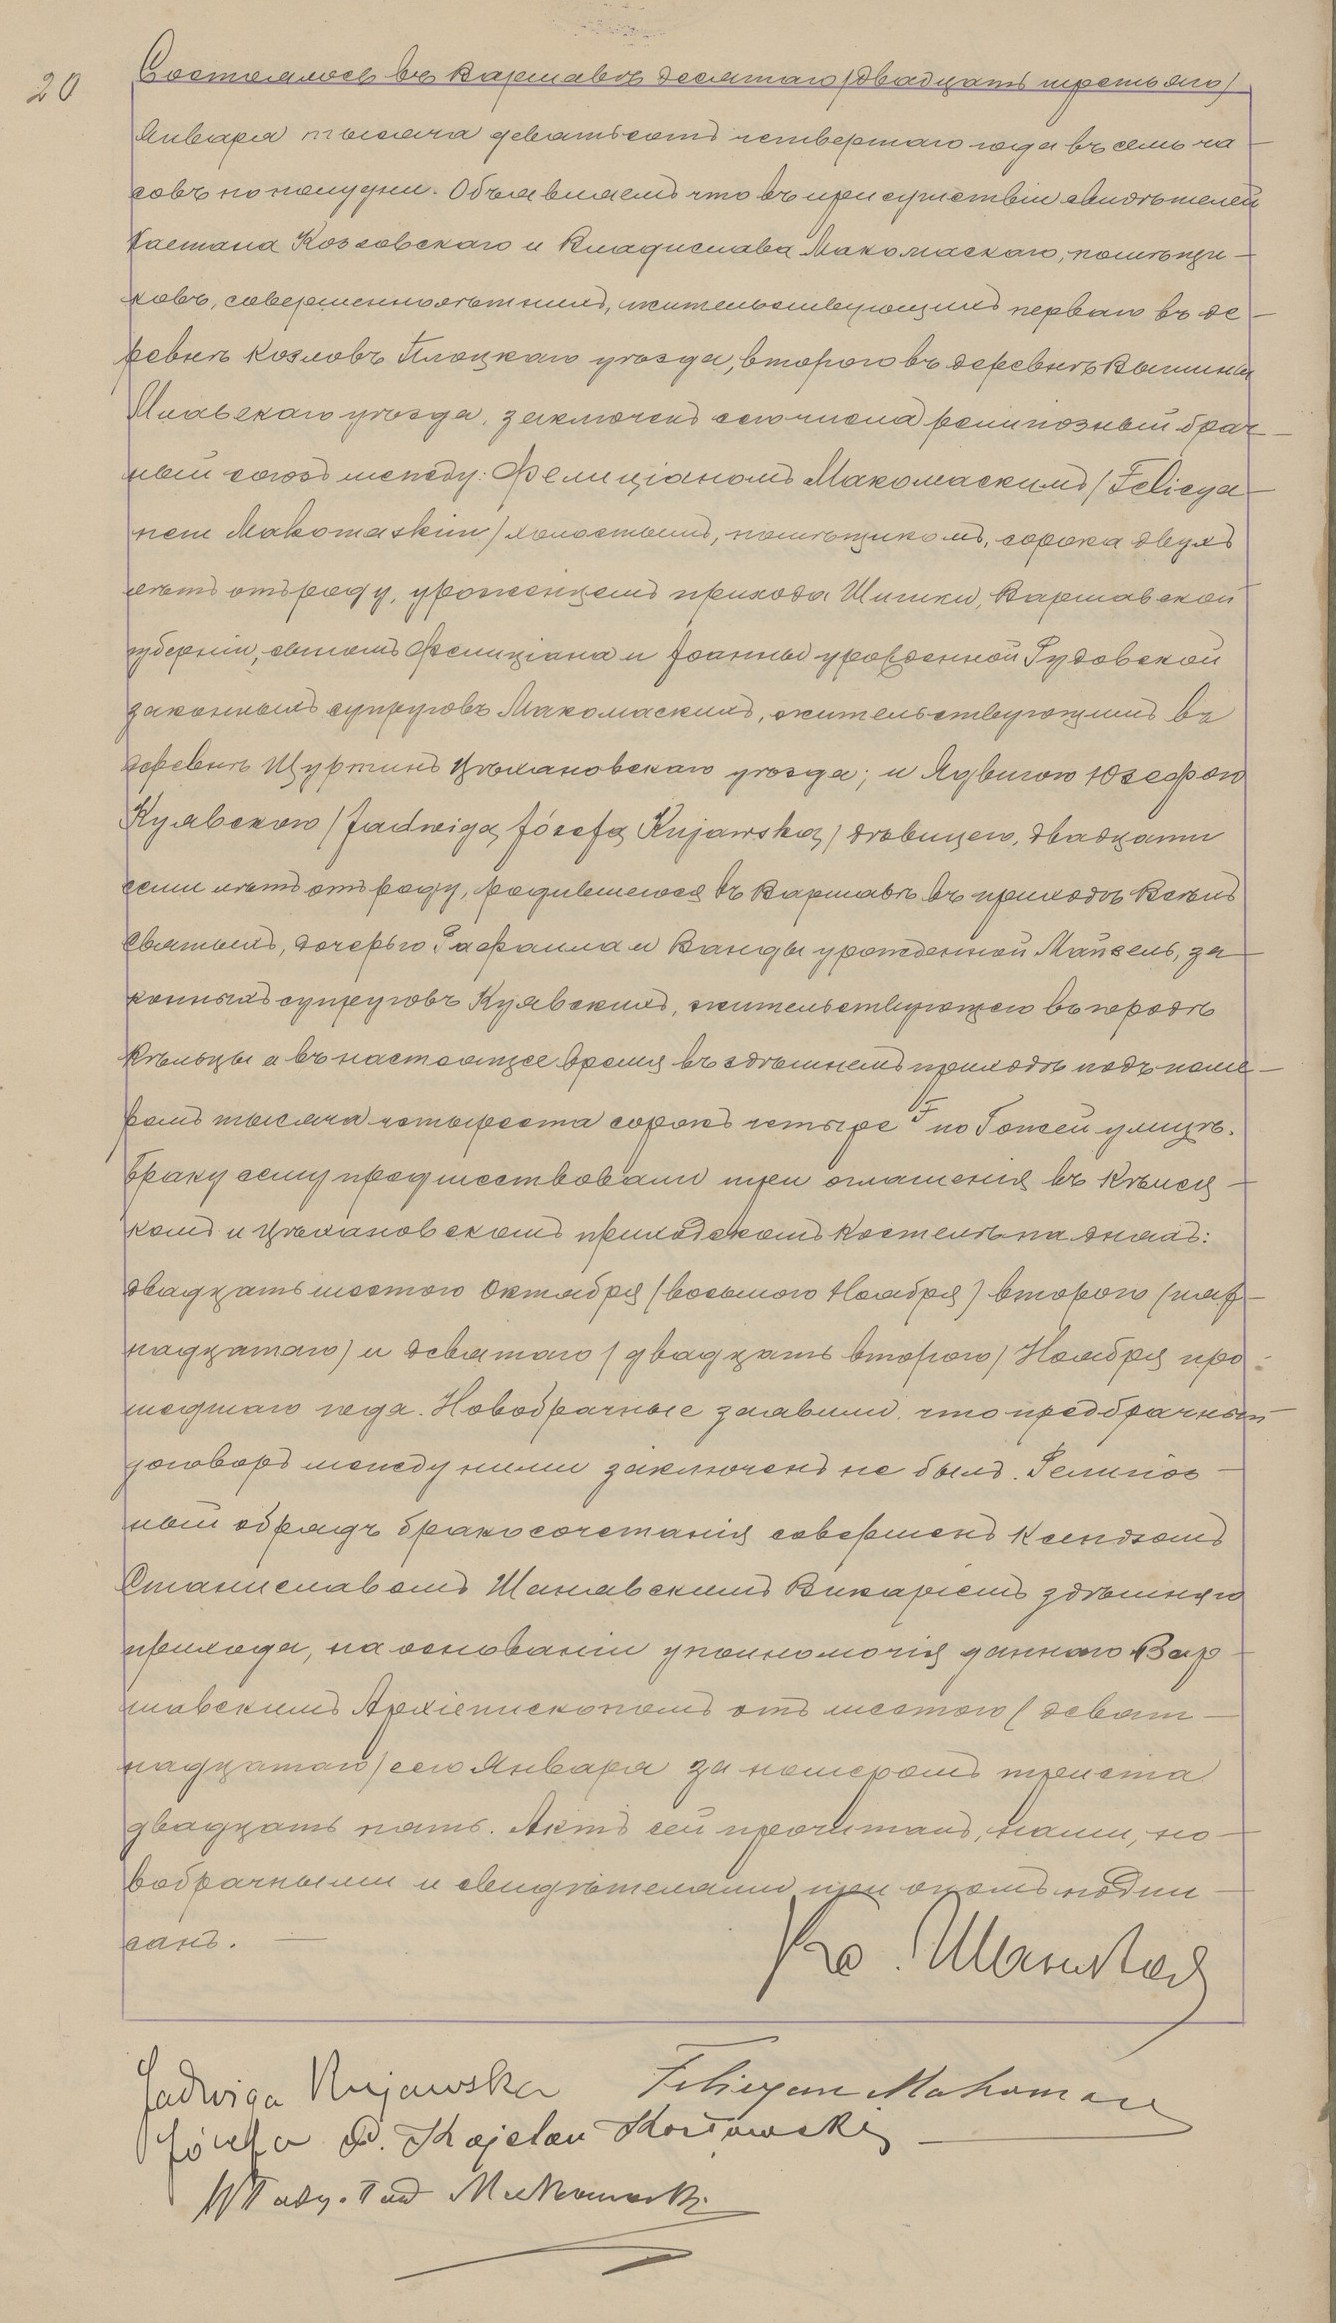 20
Состоялось въ Варшавѣ десятаго /двадцать третьяго/
Января тысяча девятьсотъ четвертаго года въ семь ча
совъ по полудни. Объявляемъ что въ присутствіи свидѣтелей
Каетана Козловскаго и Владислава Макомаскаго, помѣщи-
ковъ, совершеннолѣтнихъ, жительствующихъ перваго въ де-
ревнѣ Козловъ Плоцкаго уѣзда, второго въ деревнѣ
Млавскаго уѣзда, заключенъ сего числа религіозный брач-
ный союзъ между: Фелиціаномъ Макомаскимъ /Felicya-
nem Makomaskim/ холостымъ, помѣщикомъ, сорока двухъ
лѣтъ отъ роду, уроженцемъ прихода Варшавской
губерніи, сыномъ Фелиціана и Іоанны урожденной Рудовской
законныхъ супруговъ Макомаскихъ, жительствующимъ въ
деревнѣ Цѣхановскаго уѣзда; и Ядвигою Юзефою
Куявскою /Jadwigą Józefą Kujawską/ дѣвицею, двадцати
семи лѣтъ отъ роду, родившеюся въ Варшавѣ въ приходѣ Всѣхъ
Святыхъ, дочерью Рафаила и Ванды урожденной Майзель, за-
конныхъ супруговъ Куявскихъ, жительствующею въ городѣ
Кѣльцы а въ настоящее время въ здѣшнемъ приходѣ подъ номе-
ромъ тысяча четыреста сорокъ четыре F по Гожей улицѣ.
Браку сему предшествовали три оглашенія въ Кѣлец-
комъ и Цѣхановскомъ приходскомъ костелѣ на дняхъ:
двадцать шестого Октября /восьмого Ноября/ второго /пят-
надцатаго/ и девятаго /двадцать второго/ Ноября про-
шедшаго года. Новобрачные заявили, что предбрачный
договоръ между ними заключенъ не былъ. Религіоз-
ный обрядъ бракосочетанія совершенъ Ксендзомъ
Станиславомъ Шанявскимъ Викаріемъ здѣшняго
прихода, на основаніи уполномочія даннаго Вар-
шавскимъ Архіепископомъ отъ шестого /девят-
надцатаго/ сего Января за номеромъ триста
двадцать пять. Актъ сей прочитанъ, нами, но-
вобрачными и свидѣтелями при ономъ подпи-
санъ. —
Кс.
Jadwiga Kujawska Felicyan Makomaski
Józefa Kajetan Kozłowski
Makomaski